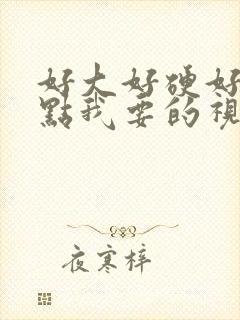 好大好硬好
點我要的視
夜寒梓